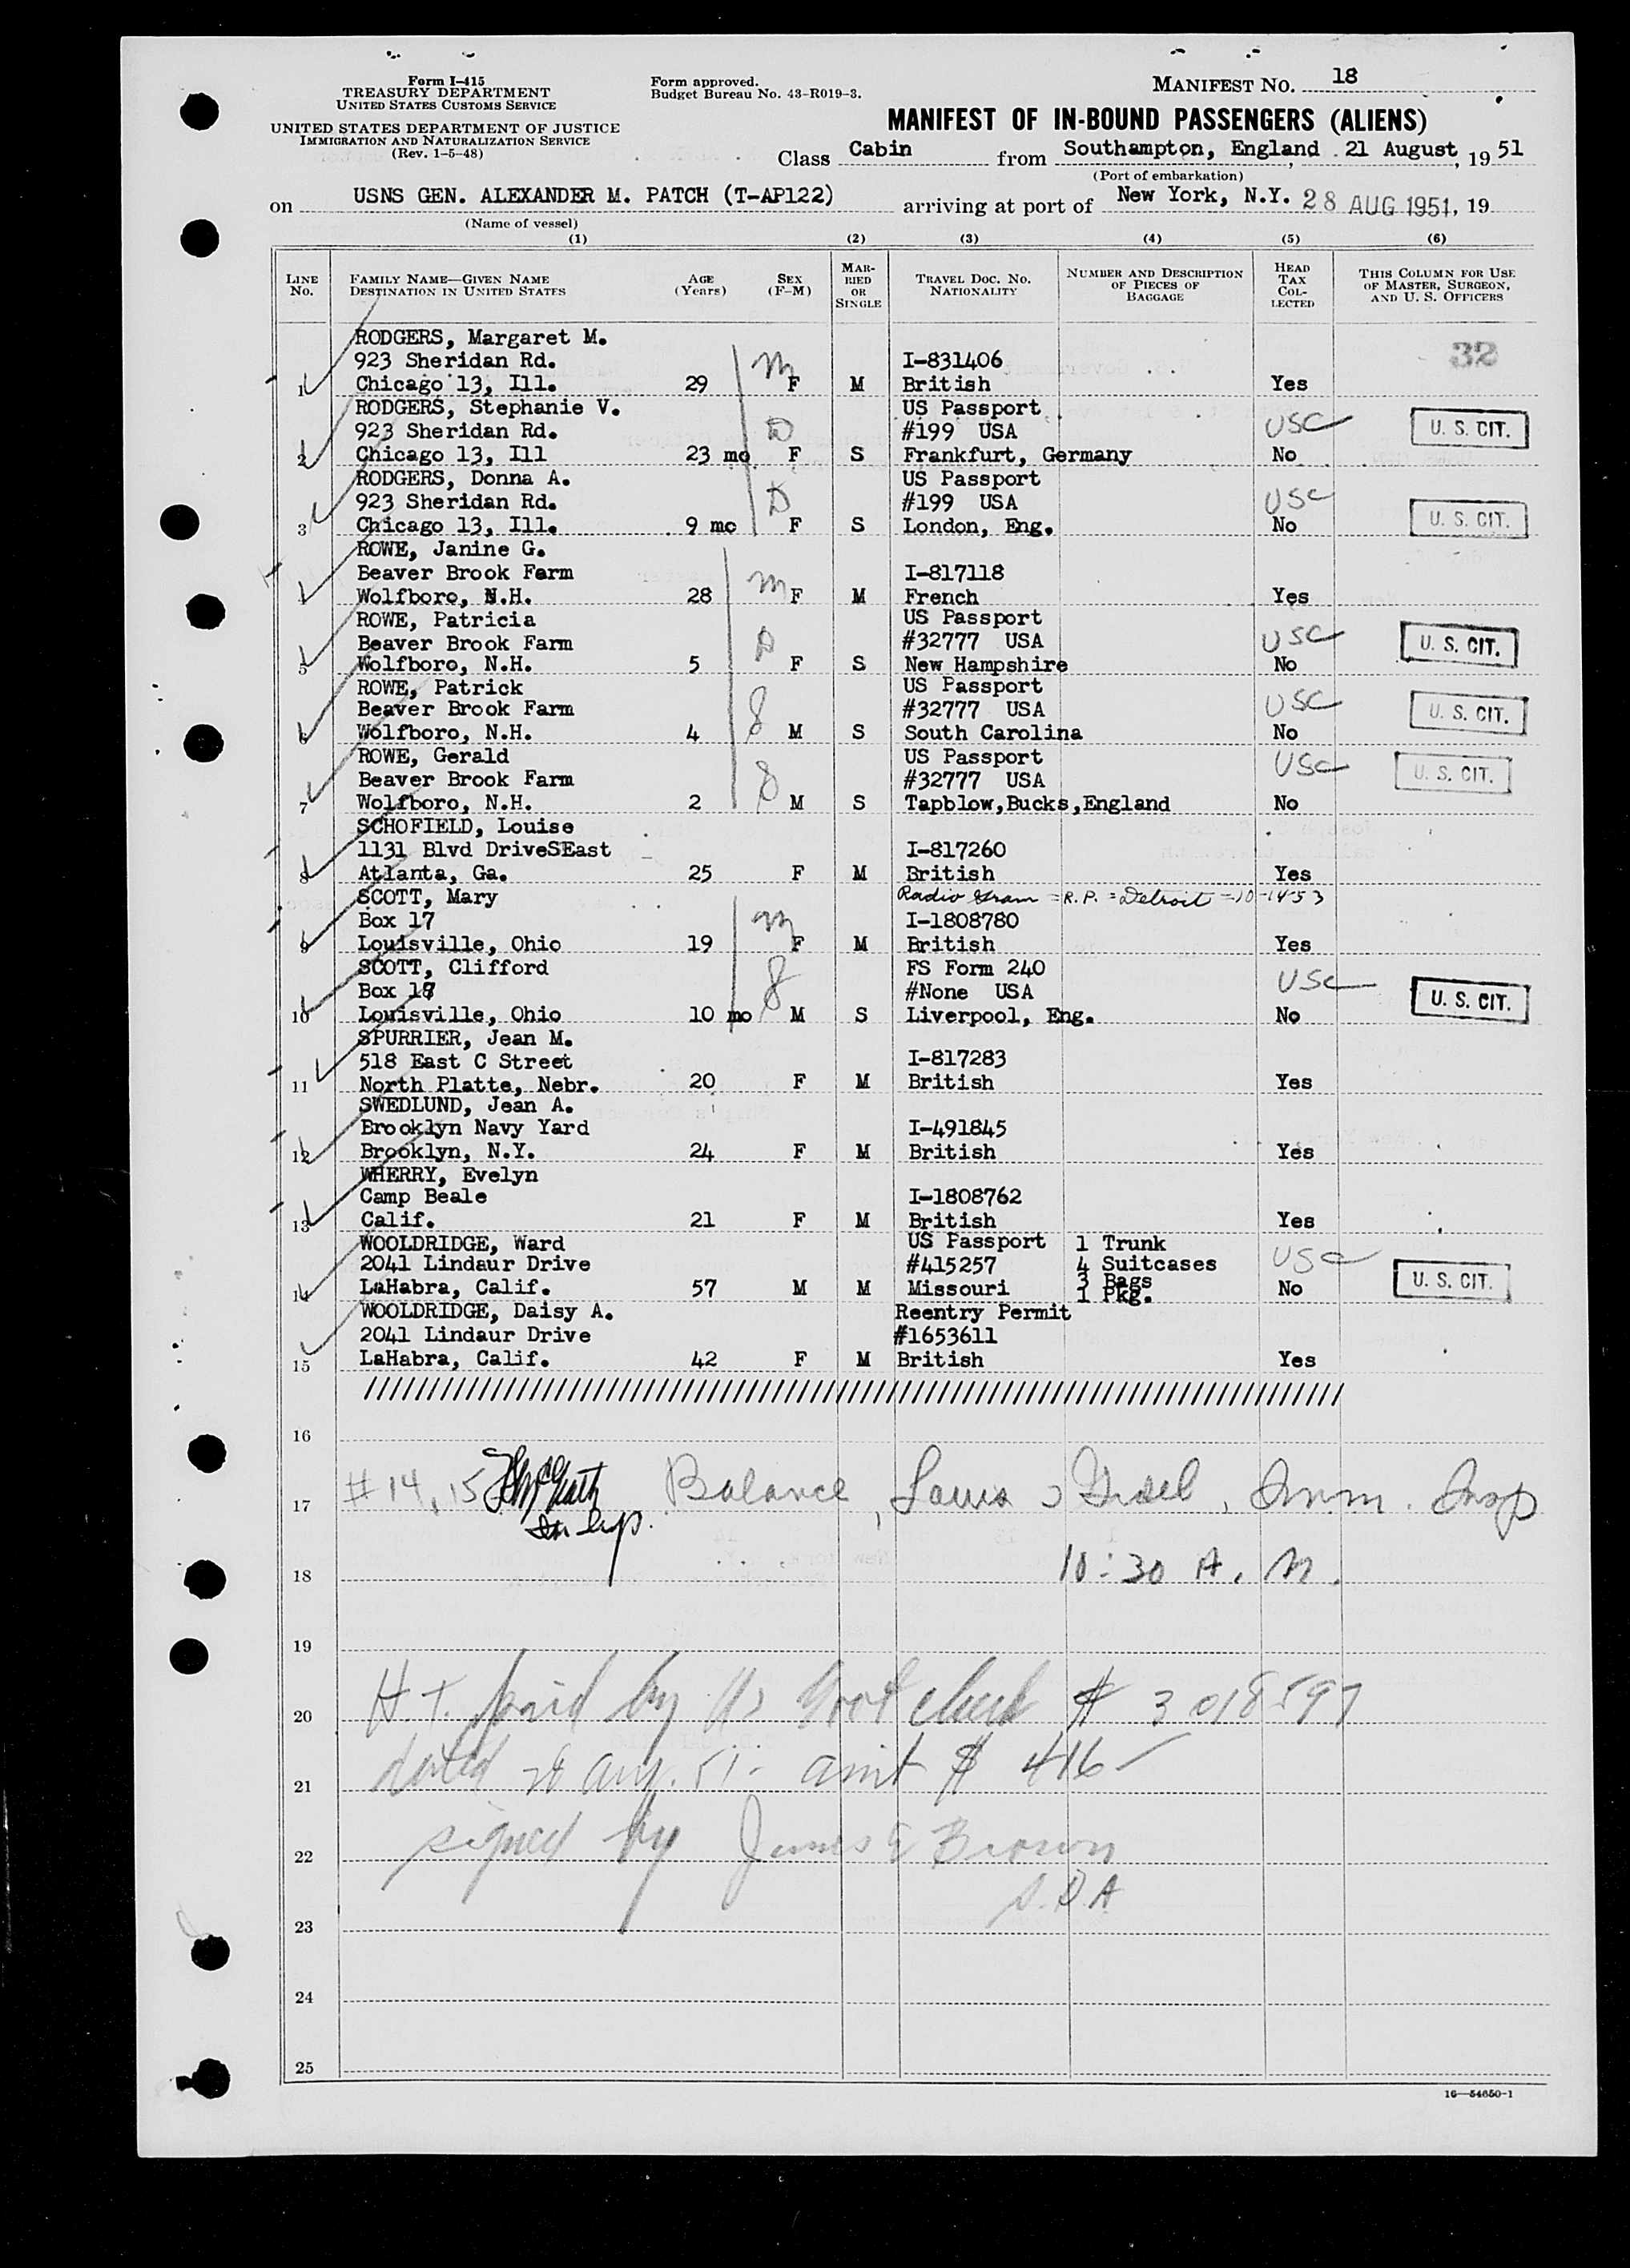 Form I-415
TREASURY DEPARTMENT
UNITED STATES CUSTOMS SERVICE
UNITED STATES DEPARTMENT OF JUSTICE
IMMIGRATION AND NATURALIZATION SERVICE
(Rev. 1-5-48)
Form approved.
Budget Bureau No. 43-R019-3.
MANIFEST NO. 18
MANIFEST OF IN-BOUND PASSENGERS (ALIENS)
Class Cabin from Southampton, England 21 August, 19 51
(Port of embarkation)
on USNS GEN. ALEXANDER M. PATCH (T-AP122) arriving at port of New York, N.Y. 28 AUG 1951, 19
(Name of vessel)
(1) (2) (3) (4) (5) (6)
LINE No. FAMILY NAME—GIVEN NAME DESTINATION IN UNITED STATES AGE (Years) SEX (F-M) MARRIED OR SINGLE TRAVEL DOC. NO. NATIONALITY NUMBER AND DESCRIPTION OF PIECES OF BAGGAGE HEAD TAX COLLECTED THIS COLUMN FOR USE OF MASTER, SURGEON, AND U. S. OFFICERS
RODGERS, Margaret M.
923 Sheridan Rd. m I-831406 32
1 Chicago 13, Ill. 29 F M British Yes
RODGERS, Stephanie V. US Passport
923 Sheridan Rd. D #199 USA USC U. S. CIT.
2 Chicago 13, Ill 23 mo F S Frankfurt, Germany No
RODGERS, Donna A. US Passport
923 Sheridan Rd. D #199 USA USC U. S. CIT.
3 Chicago 13, Ill. 9 mo F S London, Eng. No
ROWE, Janine G.
Beaver Brook Farm m I-817118
Wolfboro, N.H. 28 F M French Yes
ROWE, Patricia US Passport
Beaver Brook Farm D #32777 USA USC U. S. CIT.
5 Wolfboro, N.H. 5 F S New Hampshire No
ROWE, Patrick US Passport
Beaver Brook Farm #32777 USA USC U. S. CIT.
6 Wolfboro, N.H. 4 M S South Carolina No
ROWE, Gerald US Passport
Beaver Brook Farm #32777 USA USC U. S. CIT.
7 Wolfboro, N.H. 2 M S Tapblow,Bucks,England No
SCHOFIELD, Louise
1131 Blvd DriveSEast I-817260
8 Atlanta, Ga. 25 F M British Yes
SCOTT, Mary Radio Gram = R.P. = Detroit - 10-14-53
Box 17 m I-1808780
9 Louisville, Ohio 19 F M British Yes
SCOTT, Clifford FS Form 240
Box 17 #None USA USC U. S. CIT.
10 Louisville, Ohio 10 mo M S Liverpool, Eng. No
SPURRIER, Jean M.
518 East C Street I-817283
11 North Platte, Nebr. 20 F M British Yes
SWEDLUND, Jean A.
Brooklyn Navy Yard I-491845
12 Brooklyn, N.Y. 24 F M British Yes
WHERRY, Evelyn
Camp Beale I-1808762
13 Calif. 21 F M British Yes
WOOLDRIDGE, Ward US Passport 1 Trunk
2041 Lindaur Drive #415257 4 Suitcases USC
14 LaHabra, Calif. 57 M M Missouri 3 Bags No U. S. CIT.
1 Pkg.
WOOLDRIDGE, Daisy A. Reentry Permit
2041 Lindaur Drive #1653611
15 LaHabra, Calif. 42 F M British Yes
16
17 # 14, 15 Balance, Imm. Insp
18 10:30 A. M.
19
20 H.T. paid by US Govt check # 3018597
21 dated 28 Aug. 51 - amt $ 416
22 signed by James E Brown
23
24
25
16—54650-1